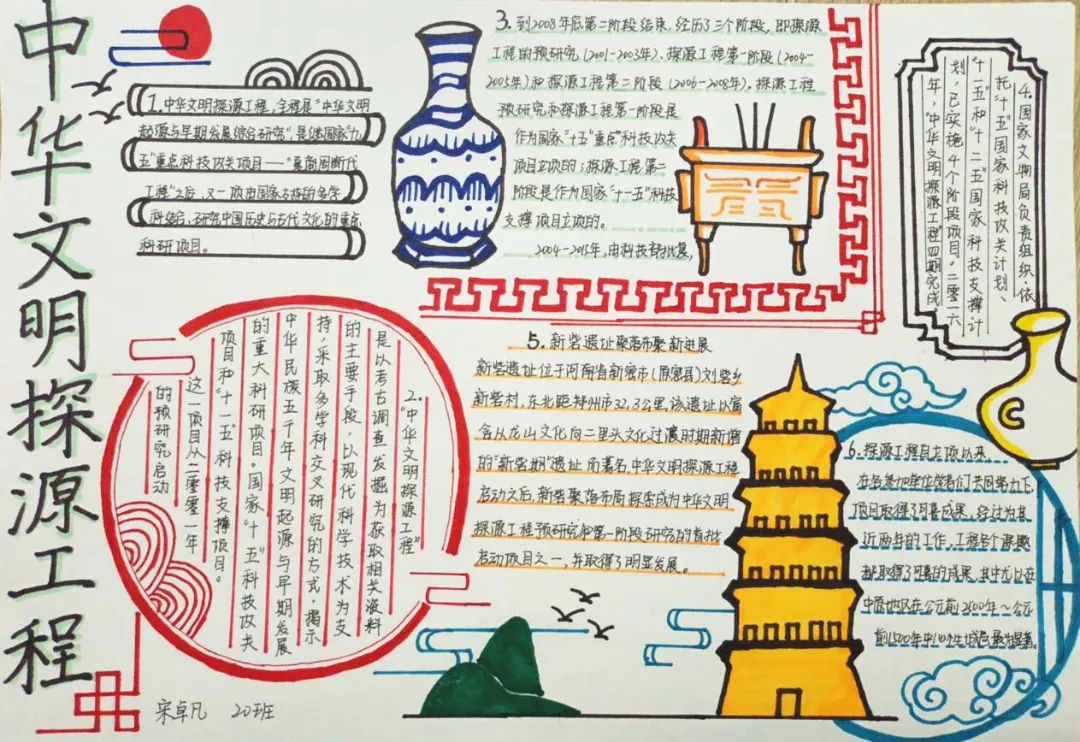 中华文明探源工程
1.中华文明探源工程,全程是“中华文明
起源与早期发展综合研究”,是继国家“九
五”重点科技攻关项目——“夏商周断代
工程”之后,又一项由国家支持的多学
科结合、研究中国历史与古代文化的重点
科研项目。
3.到2008年底第二阶段结束,经历了三个阶段,即探源
工程的预研究(2001-2003年)、探源工程第一阶段(2004-
2005年)和探源工程第二阶段(2006-2008年)。探源工程
预研究和探源工程第一阶段是
作为国家“十五”重点科技攻关
项目立项的;探源工程第二
阶段是作为国家“十一五”科技
支撑项目立项的。
2004-2015年,由科技部批复,
4.国家文物局负责组织,依
托“十五”国家科技攻关计划、
“十一五”和“十二五”国家科技支撑计
划,已实施4个阶段项目。二零一六
年,“中华文明探源工程四期完成
2.“中华文明探源工程”
是以考古调查发掘为获取相关资料
的主要手段,以现代科学技术为支
持,采取多学科交叉研究的方式,揭示
中华民族五千年文明起源与早期发展
的重大科研项目。国家“十五”科技攻关
项目和“十一五”科技支撑项目。
这一项目从二零零一年
的预研究启动
5.新砦遗址聚落布聚新进展
新砦遗址位于河南省新密市(原密县)刘砦乡
新砦村,东北距郑州市32.3公里,该遗址以富
含从龙山文化向二里头文化过渡时期新
的“新砦期”遗址而著名,中华文明探源工程
启动之后,新砦聚落布局探索成为中华文明
探源工程预研究和第一阶段研究的首批
启动项目之一,并取得了明显发展。
6.探源工程自立项以来,
在各参加单位学者们共同努力下,
项目取得了可喜成果,经过为其
近两年的工作,工程各个课题
都取得了可喜的成果,其中尤以在
中原地区在公元前2500年～公元
前1500年
宋卓凡 20班